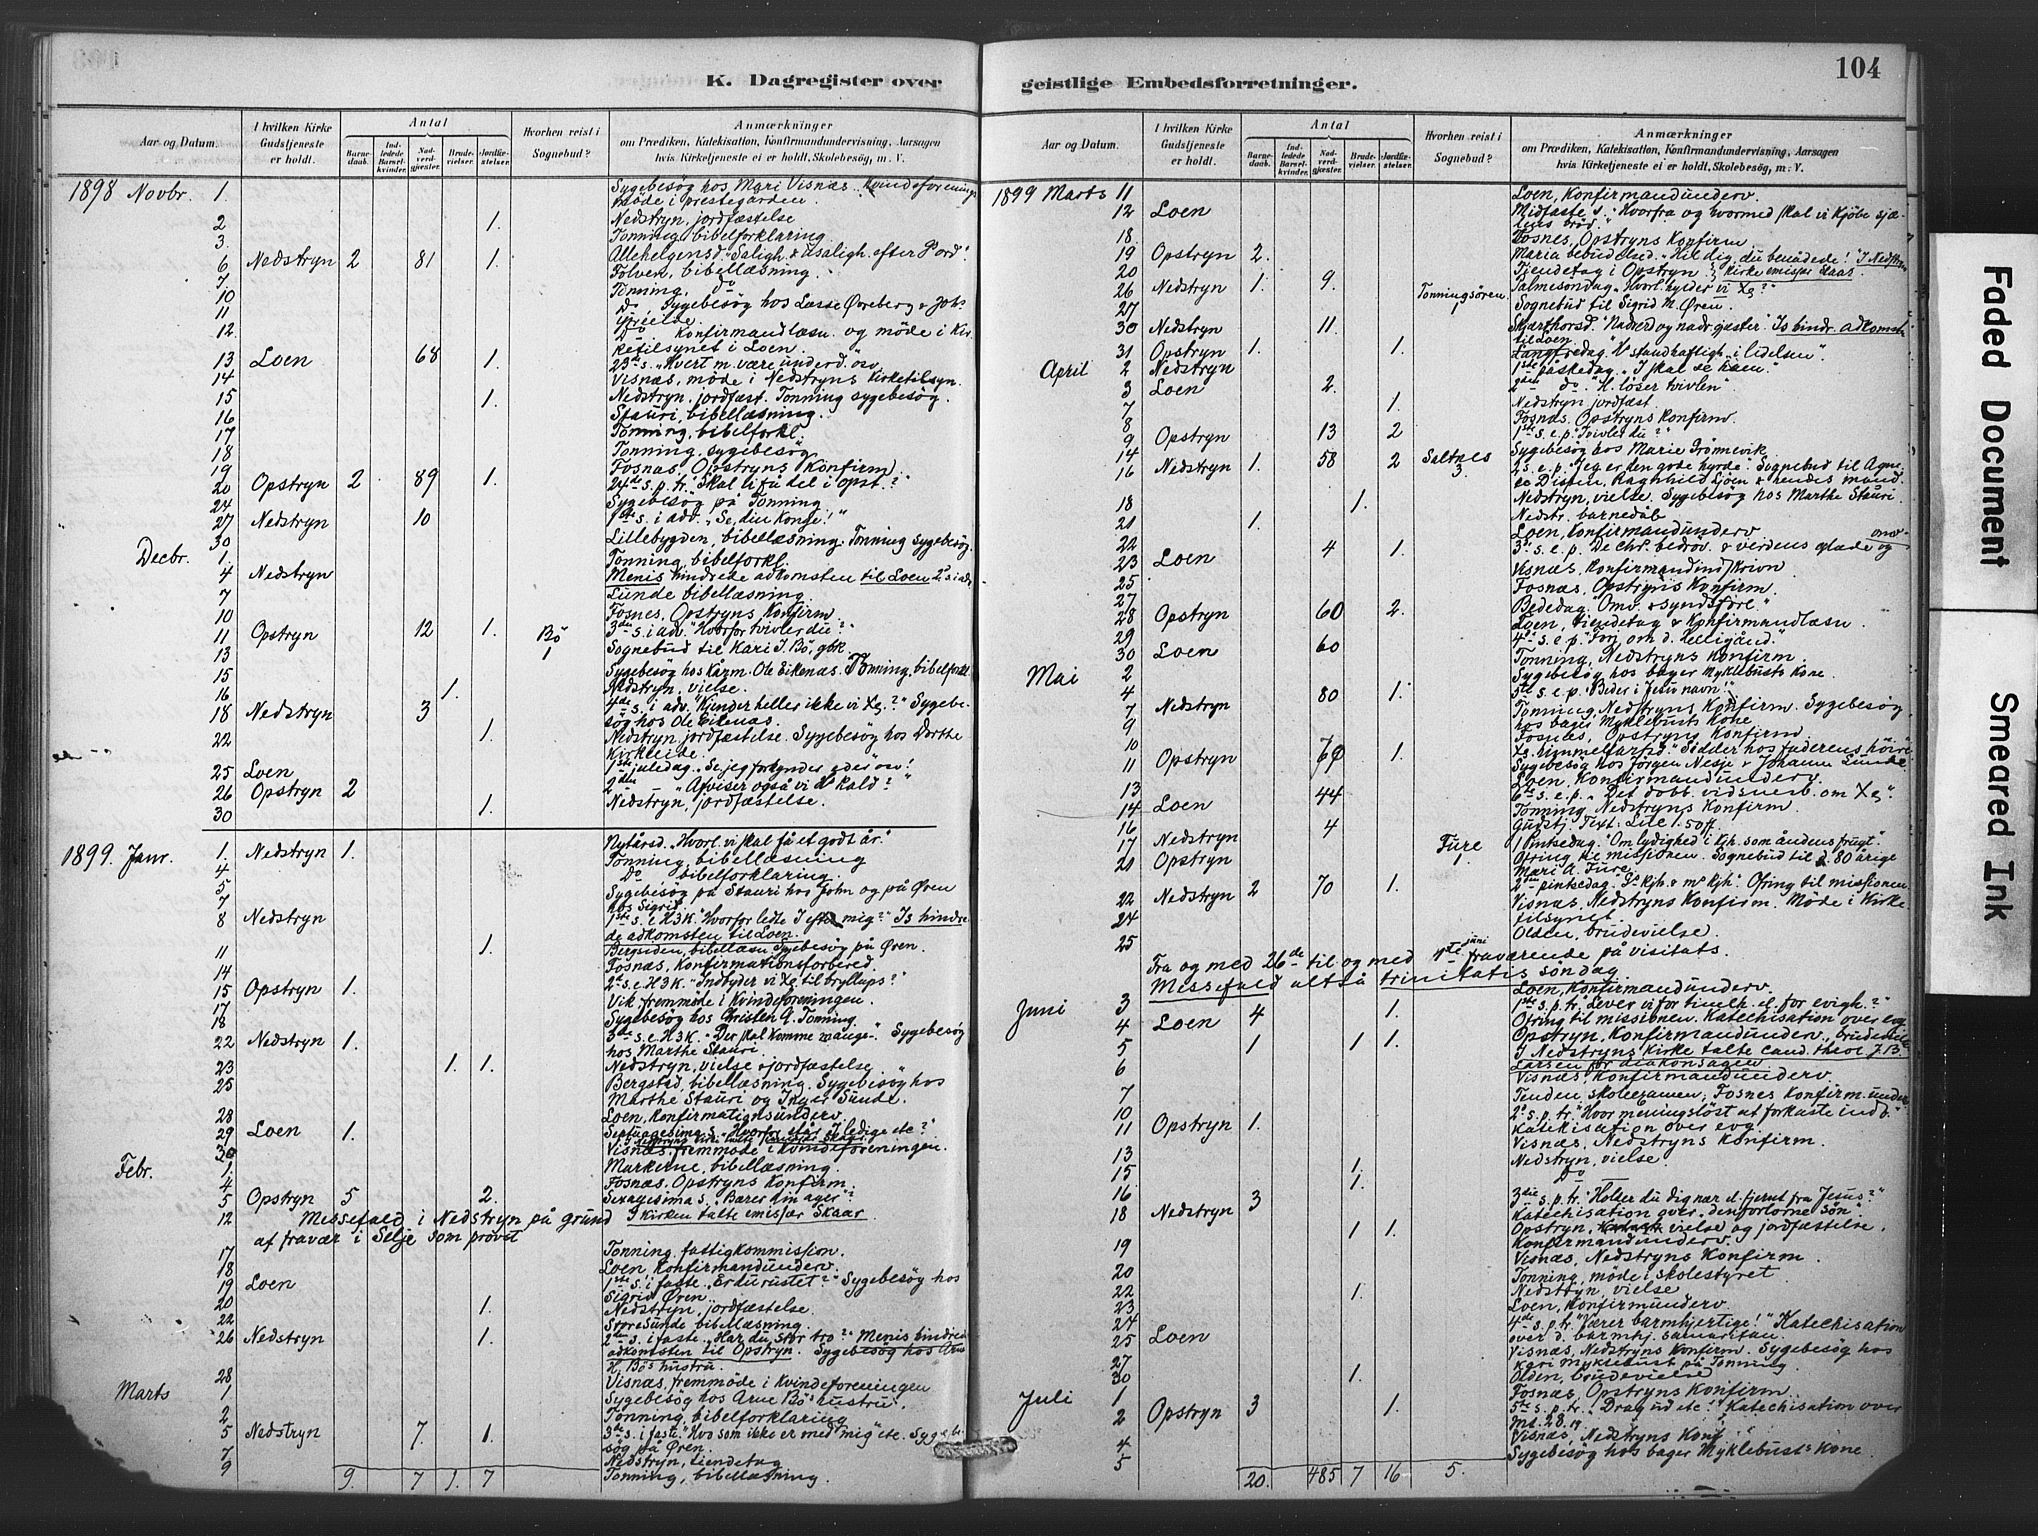 K. Dagregister over
Aar og Datum.
I hvilken Kirke Gudstjeneste er holdt.
Antal
Barnedaab.
Indledede Barselkvinder.
Nadverdgjæster.
Brudevielser.
Jordfæstelser.
Hvorhen reist i Sognebud?
Anmærkninger
om Prædiken, Katekisation, Konfirmandundervisning, Aarsagen
hvis Kirketjeneste ei er holdt, Skolebesøg, m. V.
1898 Novbr. 1. Sygebesøg hos Mari Visnæs. Kvindeforenings
møde i prestegården.
2 1. Nedstryn, jordfæstelse
3. Tonning, bibelforklaring
6 Nedstryn 2 81 1. Allehelgensd. "Saligh. & usaligh. efter d. ord".
7 Tolven, bibellæsning.
10 Tonning, do
11 Do Sygebesøg hos Lasse Øvreberg &
12 Do Konfirmandlæsn. og møde i Kir-
ketilsynet i Loen.
13 Loen 68 1. 23de s. "Hvert m. være underd." osv
14 Visnæs, møde i Nedstryns Kirketilsyn.
15 1. Nedstryn, jordfæst. Tonning sygebesøg.
16 Stauri, bibellæsning.
17 Tonning, bibelforkl.
18 Tonning, sygebesøg
19 Fosnæs, Opstryns Konfirm.
20 Opstryn 2 89 1. 24de s. p. tr. "Skal vi få del i opst.?"
24 Sygebesøg på Tonning.
27 Nedstryn 10 1ste s. i adv. "Se, din Konge!"
30 Lillebygden, bibellæsning. Tonning sygebesøg.
Decbr. 1. Tonning, bibelforkl.
4 Nedstryn Menis hindrede adkomsten til Loen 2. s. i adv.
7 Lunde bibellæsning.
10 Fosnes, Opstryns Konfirm.
11 Opstryn 12 1. 3die s. i adv. "Hvorfor tvivler du?"
13 Bö 1 Sognebud til Kari J. Bö, gbk.
15 Sygebesøg hos Kårm. Ole Eikenæs. Tonning, bibelforkl.
16 1. Nedstryn, vielse.
18 Nedstryn 3 4de s. i adv. "Kjender heller ikke vi Xs?" Sygebe-
søg hos Ole Eikenæs.
22 1. Nedstryn, jordfæstelse. Sygebesøg hos Dorthe
Kirkeeide.
25 Loen 1ste juledag. "Se jeg forkynder eder" osv!
26 Opstryn 2 2den " "Afviser også vi Hs kald?"
30 1. Nedstryn, jordfæstelse.
1899. Janr. 1. Nedstryn 1. Nytårsd. "Hvorl. vi skal få et godt år."
4 Tonning, bibellæsning
5 Do bibelforklaring.
7 Sygebesøg på Stauri hos John og på Øren
hos Sigrid.
8 Nedstryn 1ste s. e. H3K. "Hvorfor ledte I efter mig?" Is hindre-
de adkomsten til Loen.
11 1. Bergsiden, bibellæsn. Sygebesøg på Øren.
14 Fosnæs, Konfirmationsforbered.
15 Opstryn 1. 2d. s. e. H3K. "Indbyder vi Xs til bryllups?"
17 Vik fremmøde i Kvindeforeningen.
18 Sygebesøg hos Christen A. Tonning.
22 Nedstryn 1. 3die s. e. H3K. "Der skal komme mange". Sygebesøg
hos Marthe Stauri.
23 1. 1. Nedstryn, vielse & jordfæstelse.
25 Bergstad, bibellæsning. Sygebesøg hos
Marthe Stauri og Inger Sunde.
28 Loen, Konfirmationsunderv.
29 Loen 1. Septuagesima s. "Hvorfor står I ledige etc?"
30 Visnæs, fremmøde i Kvindeforeningen.
Febr. 1. Markerne, bibellæsning.
4 Fosnæs, Opstryns Konfirm.
5 Opstryn 5 2. Sexagesima s. "Bærer din ager"?
12 Messefald i Nedstryn på grund I kirken talte emisær Skaar.
af fravær i Selje som provst
17 Tonning, fattigkommission.
18 Loen, Konfirmandunderv.
19 Loen 1ste s. i faste. "Er du rustet?" Sygebesøg hos
Sigrid Øren.
20 1. Nedstryn, jordfæstelse.
22 Store Sunde bibellæsning.
26 Nedstryn 1. 2den s. i faste. "Har du stor tro?" Menis hindrede
adkomsten til Opstryn. Sygebesøg hos Arne
H. Bö's hustru.
28 Visnæs, fremmøde i Kvindeforeningen
Marts 1 Sygebesøg hos Arne Bö's hustru.
2 Tonning, bibelforklaring
5 Nedstryn 7. 1. 3die s. i faste. "Hvo som ikke er med mig" etc. Sygebe-
søg på Øren.
7 Nedstryn, tiendetag
9 Tonning, bibellæsning.
9. 7 1. 7
geistlige Embedsforretninger.
104
Aar og Datum.
I hvilken Kirke Gudstjeneste er holdt.
Antal
Barnedaab.
Indledede Barselkvinder.
Nadverdgjæster.
Brudevielser.
Jordfæstelser.
Hvorhen reist i Sognebud?
Anmærkninger
om Prædiken, Katekisation, Konfirmandundervisning, Aarsagen
hvis Kirketjeneste ei er holdt, Skolebesøg, m. V.
1899 Marts 11 Loen, Konfirmandunderv.
12 Loen Midfaste s. "Hvorfra og hvormed skal vi kjøbe sjæ-
lens brød."
18. Fosnes, Opstryns Konfirm
19 Opstryn 2. Maria bebudelsesd. "Hil dig, du benådede!" I Nedstryns
20 Tiendetag i Opstryn. kirke emisær Skaar.
26 Nedstryn 1. 9. Palmesøndag. "Hvorl. hylder vi Xs?"
27 Tonningsøren 1 Sognebud til Sigrid M. Øren.
30 Nedstryn 11. Skjærthorsd. "Nadverd og nadv. gjæster". Is hindr. adkomsten
til Loen.
31 Opstryn 1. 1. Langfredag. "H's standhaftigh. i lidelsen".
April 2 Nedstryn 1ste påskedag. "I skal se ham."
3 Loen 2. 2den do. "H. løser tvivlen"
7 1. Nedstryn jordfæst.
8 Fosnæs. Opstryns Konfirm.
9 Opstryn 13 2 1ste s. e. p. "Tvivler du?"
14 Sygebesøg hos Marie Grønnevik
16 Nedstryn 1. 58 2 Saltnes 3. 2d. s. e. p. "Jeg er den gode hyrde". Sognebud til Agne-
te Disten, Raghnhild Loen & hendes mand.
18 1. Nedstryn, vielse. Sygebesøg hos Marthe Stauri
21 1. Nedstr. barnedåb
22 Loen, Konfirmandunderv
23 Loen 4 1. 3die s. e. p. "De chr. bedrøv. & verdens glæde og omv."
25 Visnæs, Konfirmandindskrivn
27 Fosnæs, Opstryns Konfirm.
28 Opstryn 60 2. Bededag. "Omv. & syndsforl."
29 Loen, tiendetag & Konfirmandlæsn.
30 Loen 60 4de s. e. p. "Tvi om d. Helligånd."
Mai 2 Tonning, Nedstryns Konfirm
4 Sygebesøg hos bager Myklebusts Kone.
7 Nedstryn 80 1. 5te s. e. p. "Beder i Jesu navn!"
9 Tonning, Nedstryns Konfirm. Sygebesøg
hos bager Myklebusts Kone
10 Fosnes, Opstryns Konfirmd
11 Opstryn 1. Xs himmelfartsd. "Sidder hos faderens høire"
Sygebesøg hos Jørgen Nesje & Johanne Sunde
13 Loen, Konfirmandunderv.
14 Loen 44 6te s. e. p. "Det dobb. vidnesb. om Xs".
16 Tonning, Nedstryns Konfirm.
17 Nedstryn 4 Gudstj. Text:
21 Opstryn Fure 1. 1 Pintsedag. "Om lydighed i Kjh. som åndens frugt".
Ofring til missionen. Sognebud til 80 årige
Mari A. Fure.
22 Nedstryn 2 70 1. 2den pintsedag. "Gs kjh. & ms kjh". Ofring til missionen.
24 Visnæs, Nedstryns Konfirm. Møde i Kirke-
tilsynet.
25 Olden, brudevielse.
Fra og med 26de til og med 1ste juni fraværende på visitats.
Messefald altså trinitatis søndag
Juni 3 Loen, Konfirmandunderv.
4 Loen 4 1. 1ste s. p. tr. "Lever vi for timeh. el. for evigh.?"
Ofring til missionen. Katechisation over evg
5 1 1 1. Opstryn, Konfirmandunderv., brudevielse
6 I Nedstryns Kirke talte cand. theol. J. B.
Larsen for diakonsagen
7 Visnæs, Konfirmandunderv
10 Tenden skoleexamen, Fosnes Konfirm. underv
11 Opstryn 1. 2d. s. p. tr. "Hvor meningsløst at forkaste indb."
Katekisation over evg.
13 Visnæs, Nedstryns Konfirm.
15 1. Nedstryn, vielse
16 1. Do
18 Nedstryn 3 3die s. p. tr. "Holder du dig nær el. fjernt fra Jesus?"
Katechisation over "den fortorne søn".
19 1 1. Opstryn, vielse og jordfæstelse,
Konfirmandunderv.
20 Visnæs, Nedstryns Konfirm
22 Tonning, møde i skolestyret
23 1. Nedstryn, vielse
24 Loen, Konfirmunderv
25 Loen 4de s. p. tr. "Værer barmhjertige!" Katechisation
over d. barmhj. samaritan.
27 Visnæs, Nedstryns Konfirm. Sygebesøg hos
Kari Myklebust på Tonning
30 1. Olden, brudevielse
Juli 1 Fosnæs, Opstryns Konfirm.
2 Opstryn 3 1. 5te s. p. tr. "Drag ud etc!" Katechisation over
Mt. 28.19
4 Visnæs, Nedstryns Konf.
5 Sygebesøg hos bager Myklebusts Kone
20. 485 7 16 5.
Faded Document
Smeared Ink